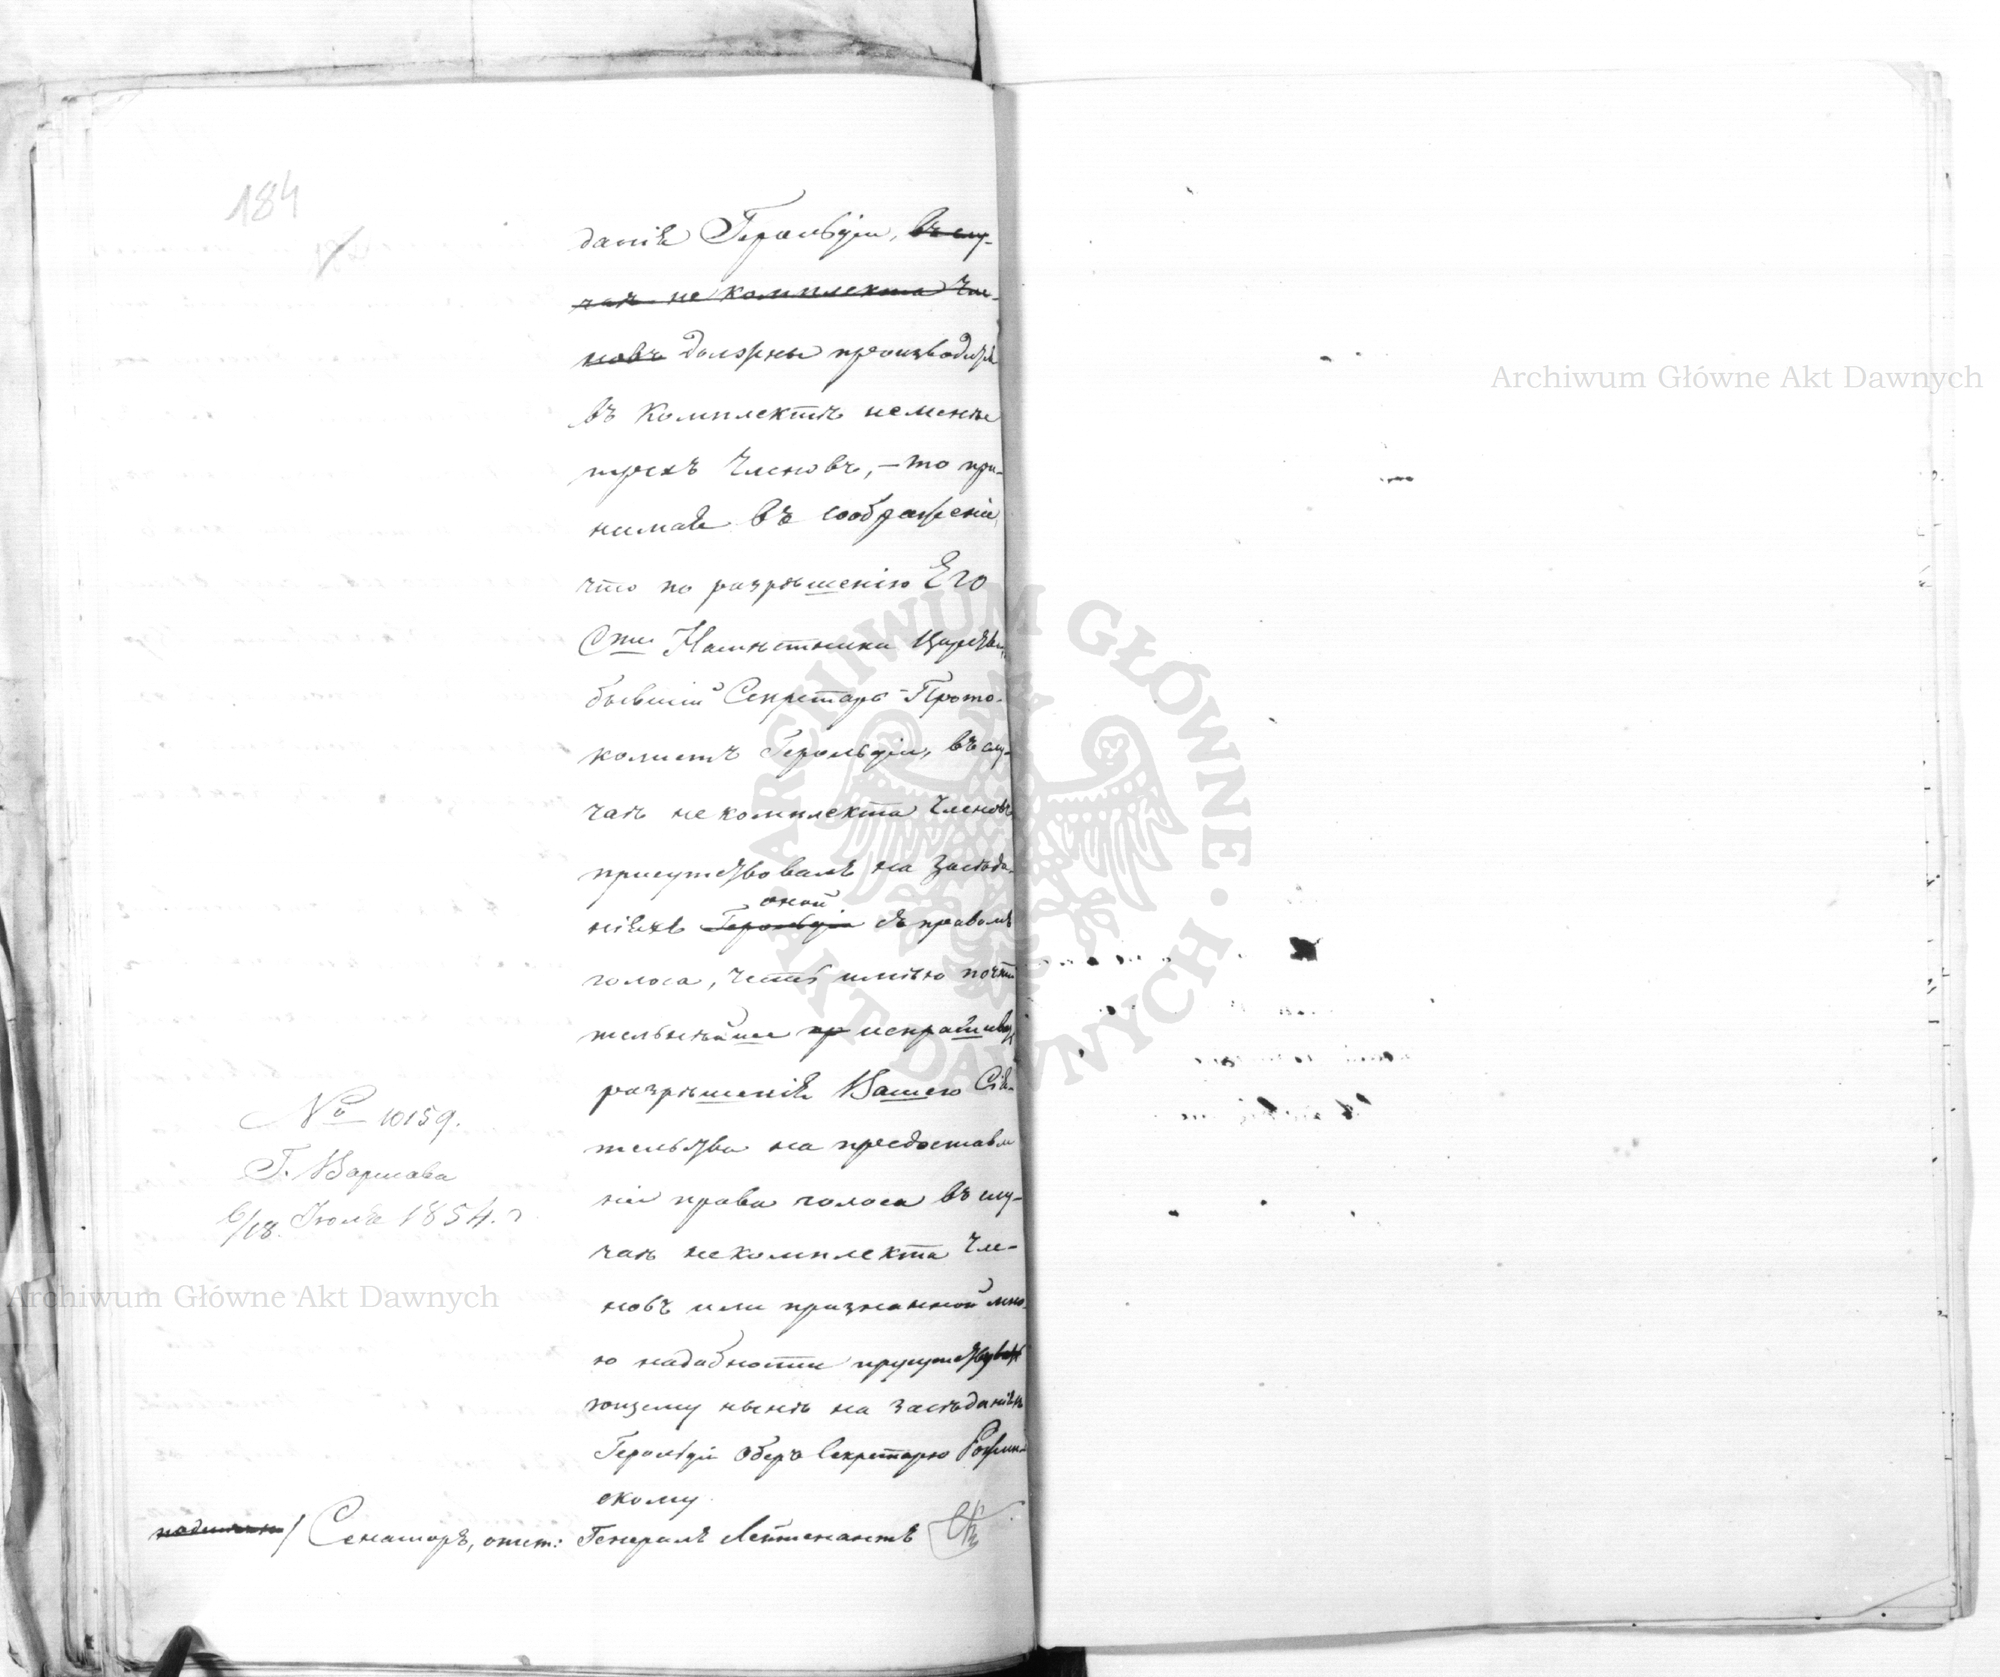 184
данія Герольдіи, въ слу-
чаѣ не комплекта Чле-
новъ должны производится
въ Комплектѣ неменѣе
трехъ Членовъ, – то при-
нимая въ соображеніе,
что по разрѣшенію Его
Сти Намѣстника Царства
бывшій Секретарь-Прото-
колистъ Герольдіи, въ слу-
чаѣ не комплекта Членовъ
присутствовалъ на Засѣда-
ніяхъ Герольдіи оной съ правомъ
голоса, честь имѣю почти-
тельнѣйше пр испрашивать
разрѣшенія Вашего Сія-
тельства на предоставле-
ніе права голоса въ слу-
чаѣ некомплекта Чле-
новъ или признанной мно-
ю надобности присутству-
ющему нынѣ на засѣданіяхъ
Герольдіи Оберъ Секретарю
скому.
№ 10159.
Г. Варшава
6/18 Іюля 1854. г.
подписалъ / Сенаторъ, отст: Генералъ Лейтенантъ
Archiwum Główne Akt Dawnych
Archiwum Główne Akt Dawnych
ARCHIWUM GŁÓWNE · AKT DAWNYCH ·